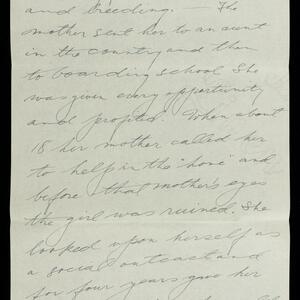 and breeding. — The
mother sent her to an aunt
in the country and then
to boarding school She
was given every opportunity
and profited. When about
18 her mother called her
to help in the "home" and
before that mother's eyes
the girl was ruined. She
looked upon herself as
a social outcast and
for four years gave her